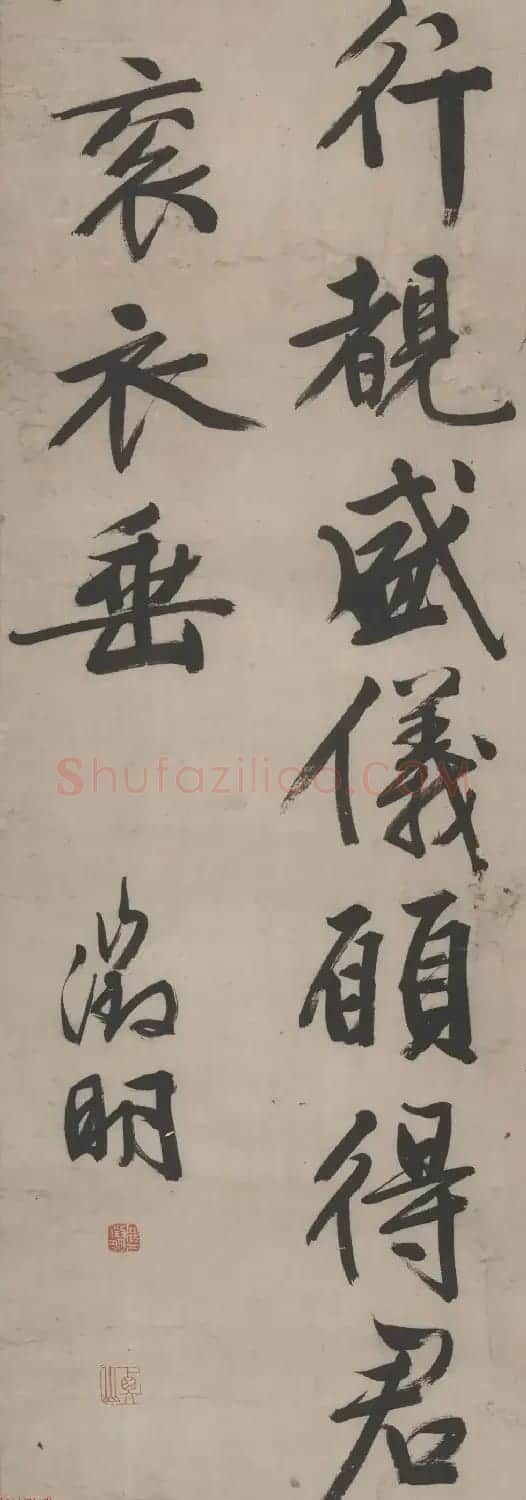 行覩盛儀願得君
袞衣垂 徵明
Shufaziliao.COM